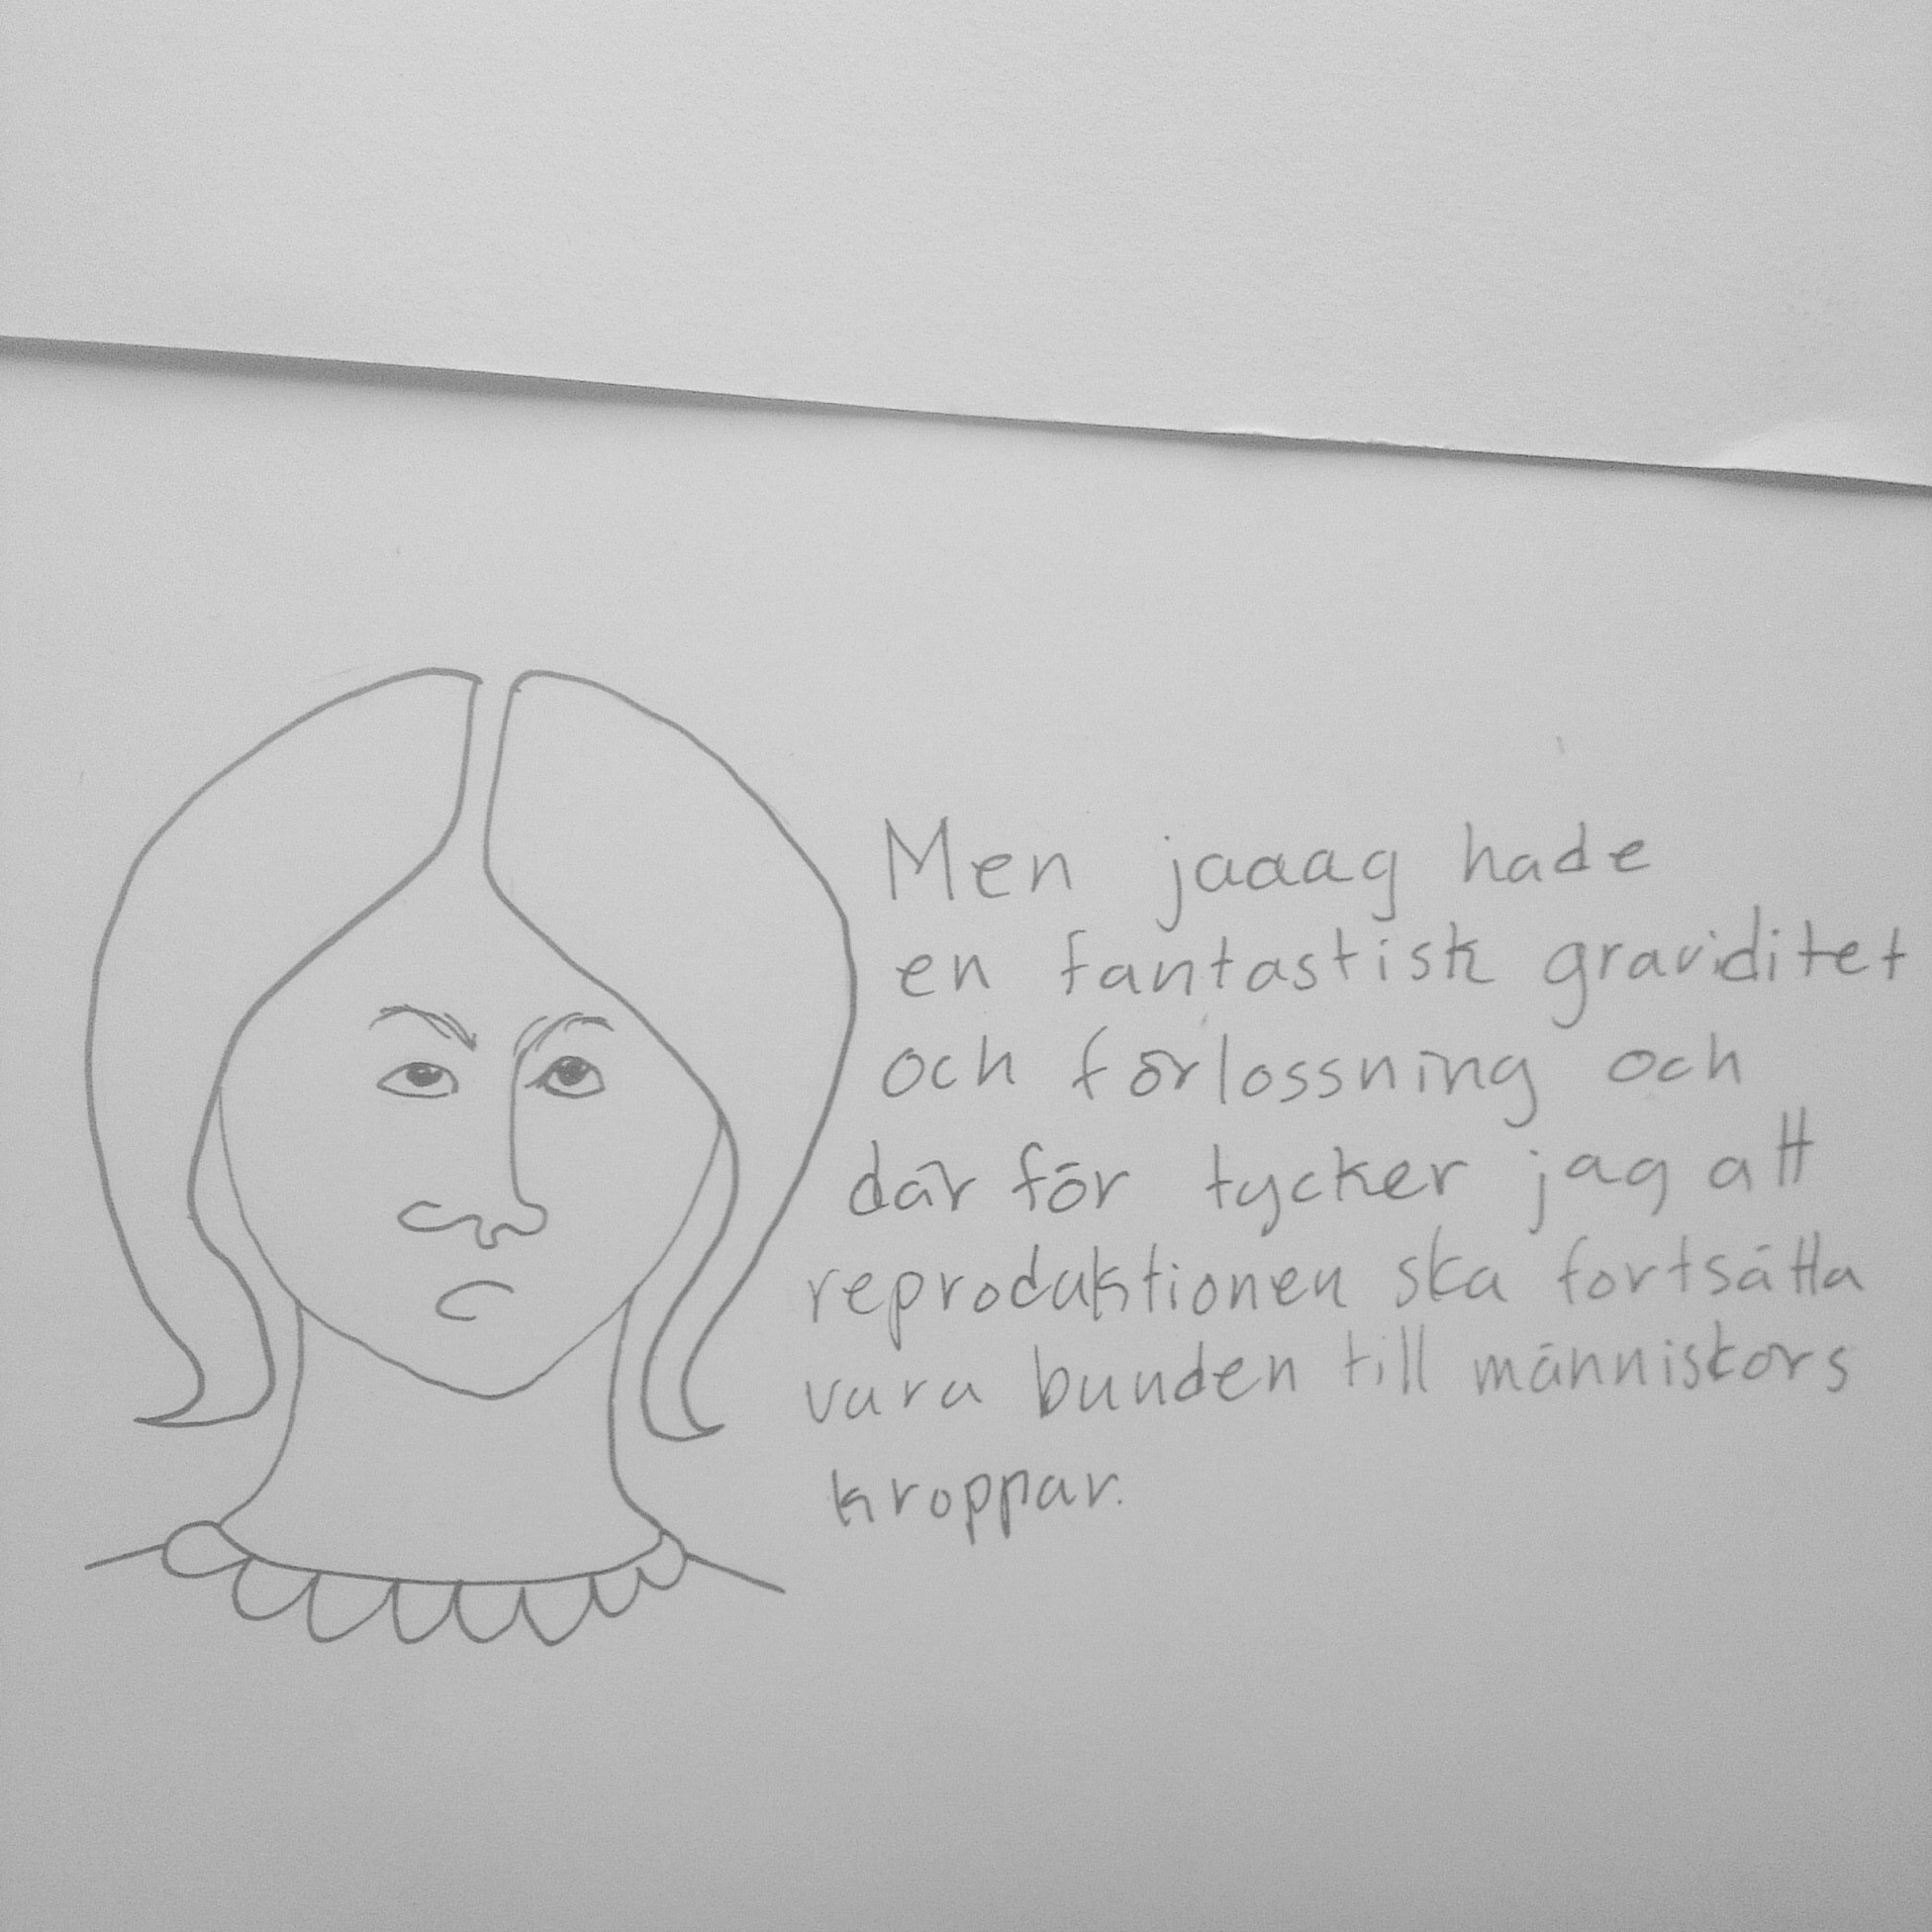 Men jaaag hade
en fantastisk graviditet
och förlossning och
där för tycker jag att
reproduktionen ska fortsätta
vara bunden till människors
kroppar.